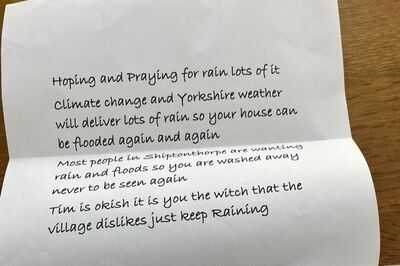 Hoping and Praying for rain lots of it
Climate change and Yorkshire weather
will deliver lots of rain so your house can
be flooded again and again
Most people in Shiptonthorpe are wanting
rain and floods so you are washed away
never to be seen again
Tim is okish it is you the witch that the
village dislikes just keep Raining